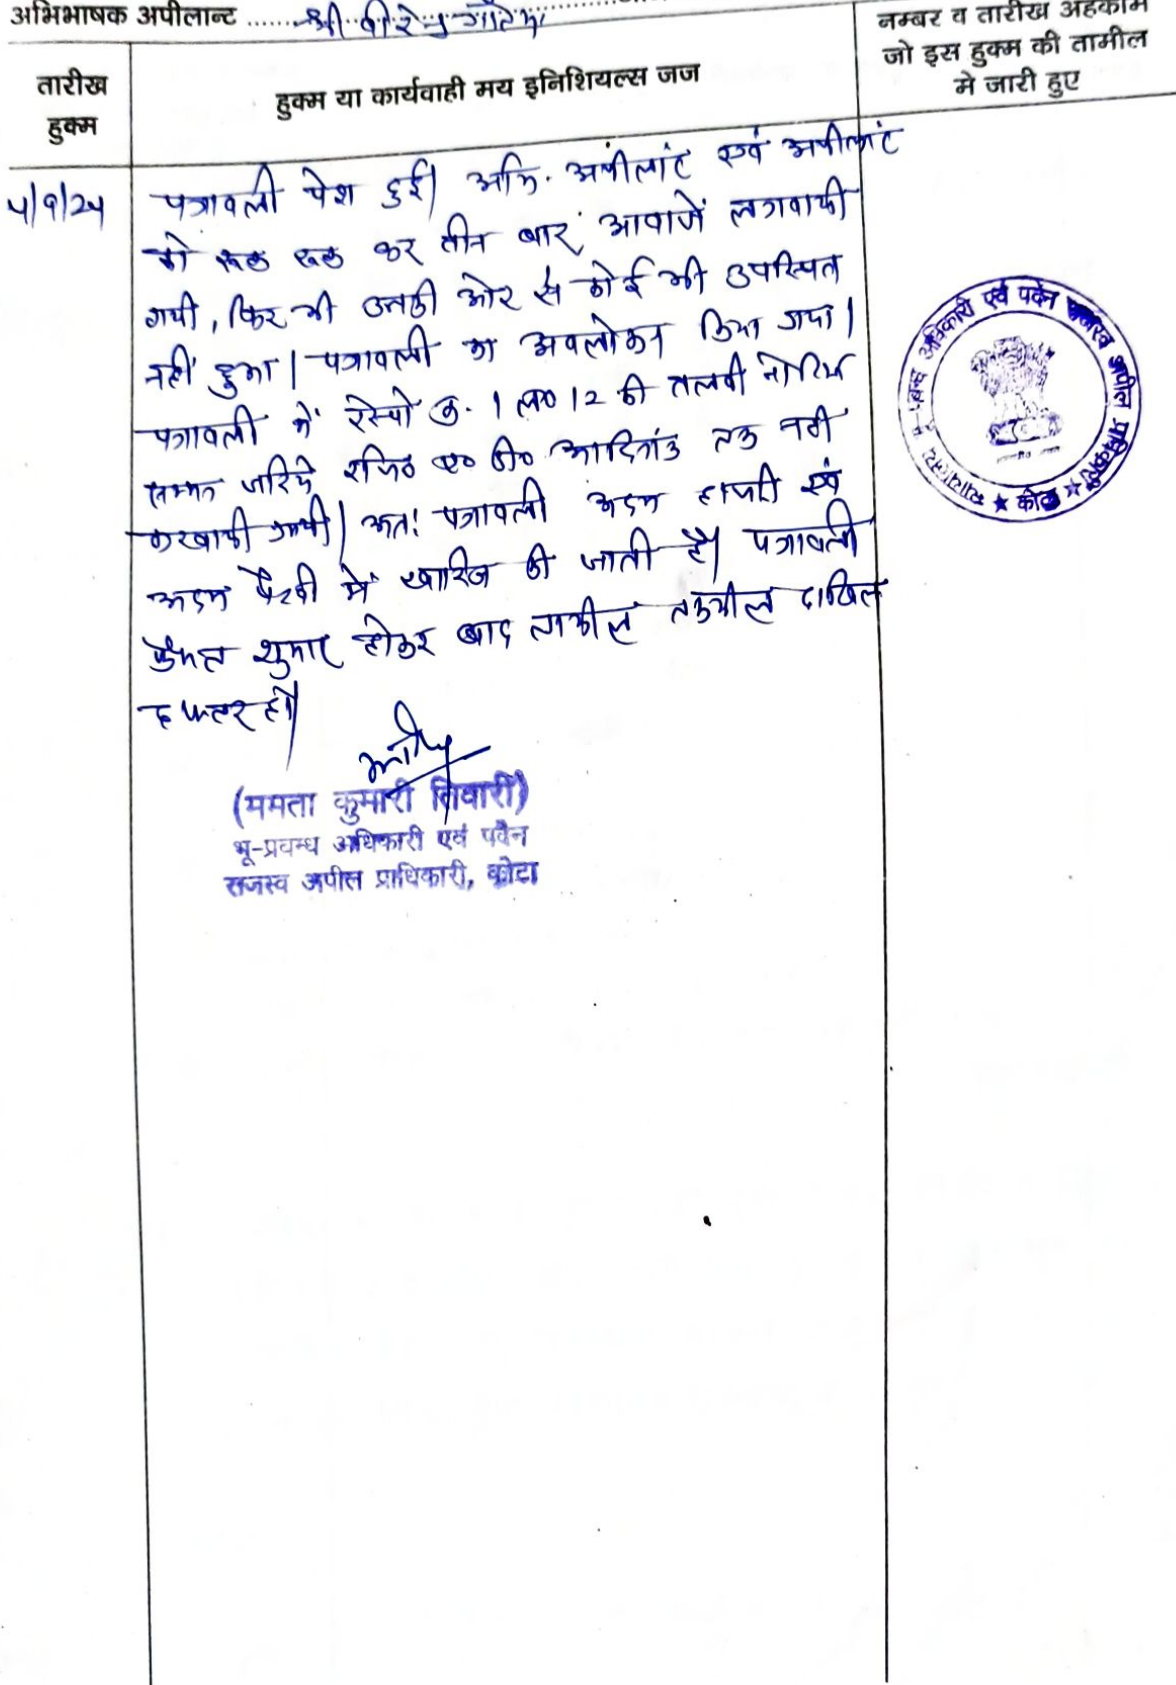 अभिभाषक अपीलान्ट ......श्री वीरेन्द्र गौतम
नम्बर व तारीख अहकाम
जो इस हुक्म की तामील
मे जारी हुए
तारीख
हुक्म
हुक्म या कार्यवाही मय इनिशियल्स जज
4/9/24
पत्रावली पेश हुई। अभि. अपीलांट एवं अपीलांट
को रूक रूक कर तीन बार आवाजें लगवायी
गयी, फिर भी उनकी ओर से कोई भी उपस्थित
नहीं हुआ। पत्रावली का अवलोकन किया गया।
पत्रावली में रेस्पो क्र. 1 ला० 12 की तलवी नोटिस
जरिये रजि० ए० डी० आदिनांक तक नही
करवायी गयी। अतः पत्रावली अदम हाजरी एवं
अदम पैरवी में खारिज की जाती है। पत्रावली
फैसल शुमार होकर बाद तामील तकमील दाखिल
दफ्तर हो।
(ममता कुमारी तिवारी)
भू-प्रवन्ध अधिकारी एवं पदेन
राजस्व अपील प्राधिकारी, कोटा
न्यायालय भू-प्रबन्ध अधिकारी एवं पदेन राजस्व अपील प्राधिकारी ★ कोटा ★